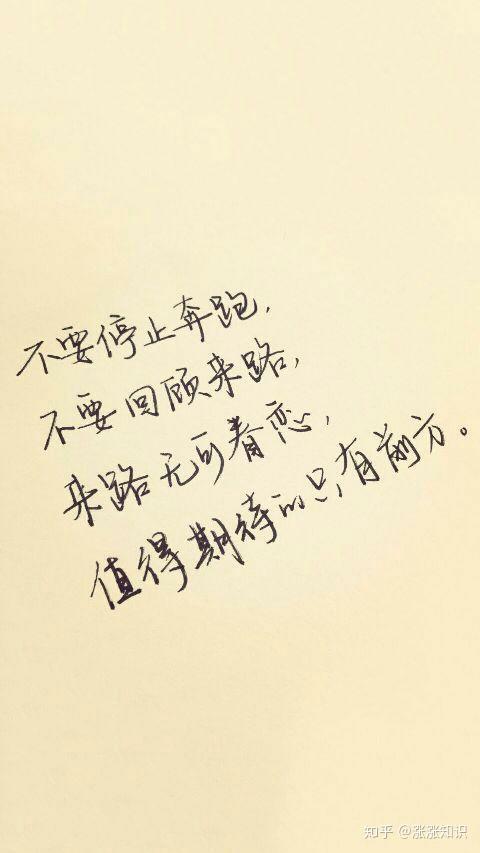 不要停止奔跑，
不要回顾来路，
来路无可眷恋，
值得期待的只有前方。
知乎 @涨涨知识